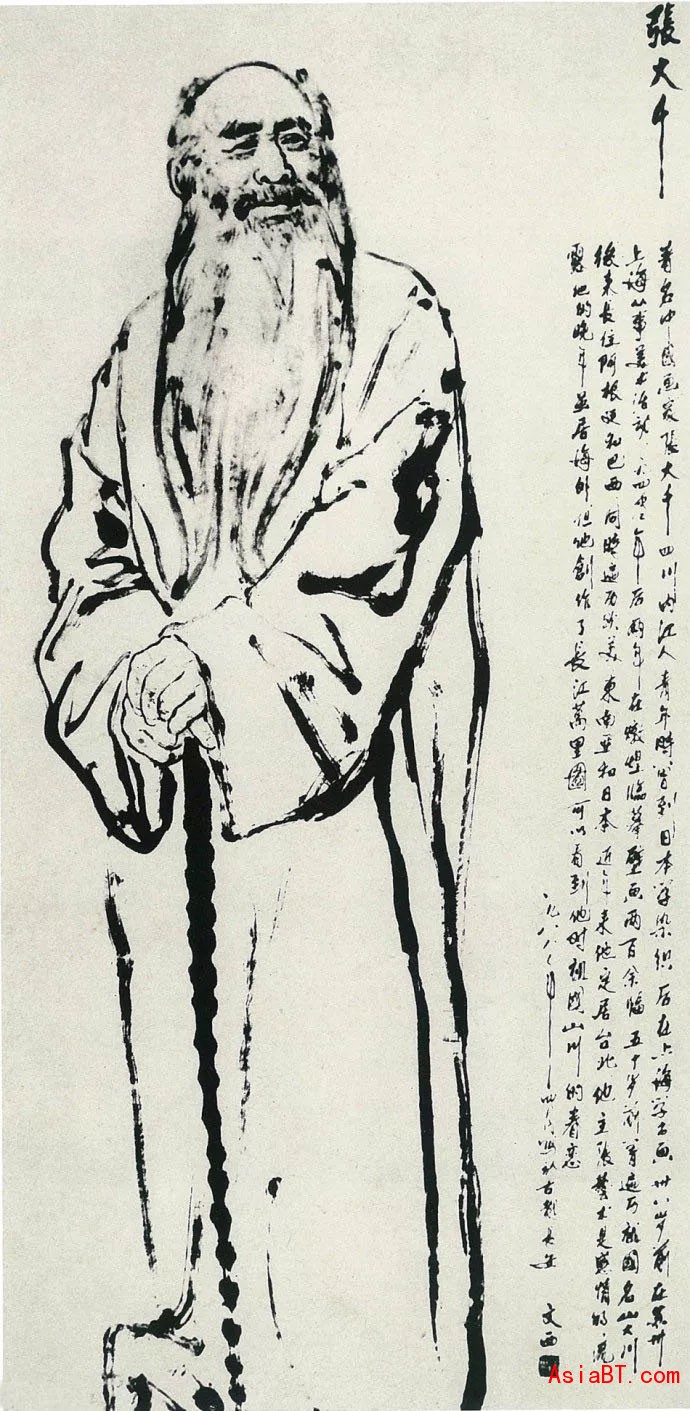 張大千
著名中國画家張大千四川内江人青年時曾到日本学染织后在上海学书画卅八岁前在苏州
上海从事美术活动一九四年后两年在燉煌临摹壁画两百余幅五十岁前曾遍历祖國名山大川
後来長住阿根廷和巴西同時遍历欧美東南亚和日本近年来他定居台北他主張藝术是感情的流
露他的晚年並居海外但他創作了長江萬里圖可以看到他对祖國山川的眷恋
一九八年於古都長安 文西
AsiaBT.com